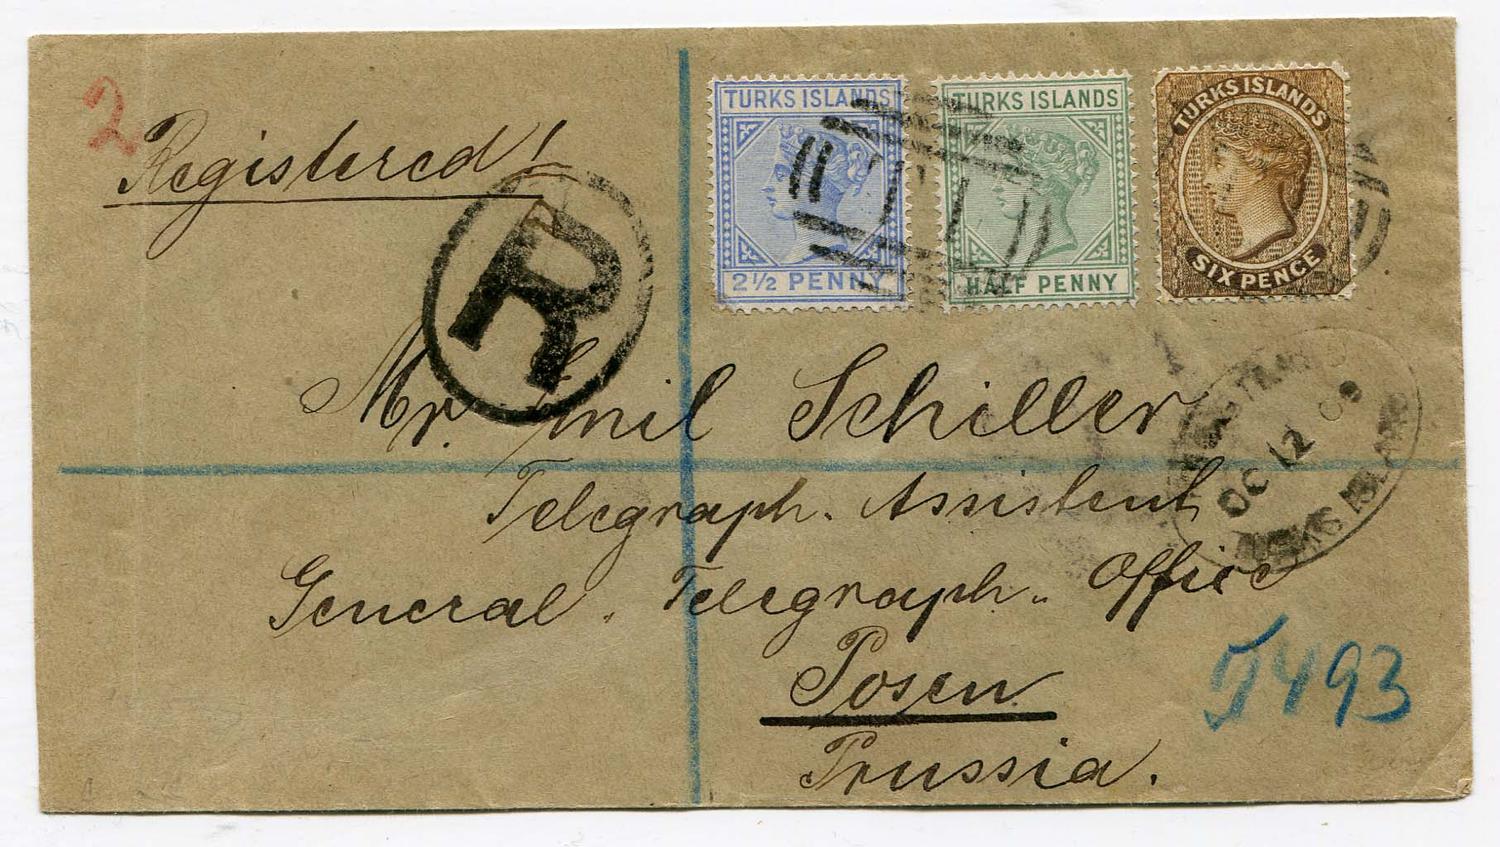 2
Registered!
R
TURKS ISLANDS
2½ PENNY
TURKS ISLANDS
HALF PENNY
TURKS ISLANDS
SIX PENCE
Mr. Emil Schiller
Telegraph. Assistent
General. Telegraph. Office
Posen
Prussia.
OC 12
493